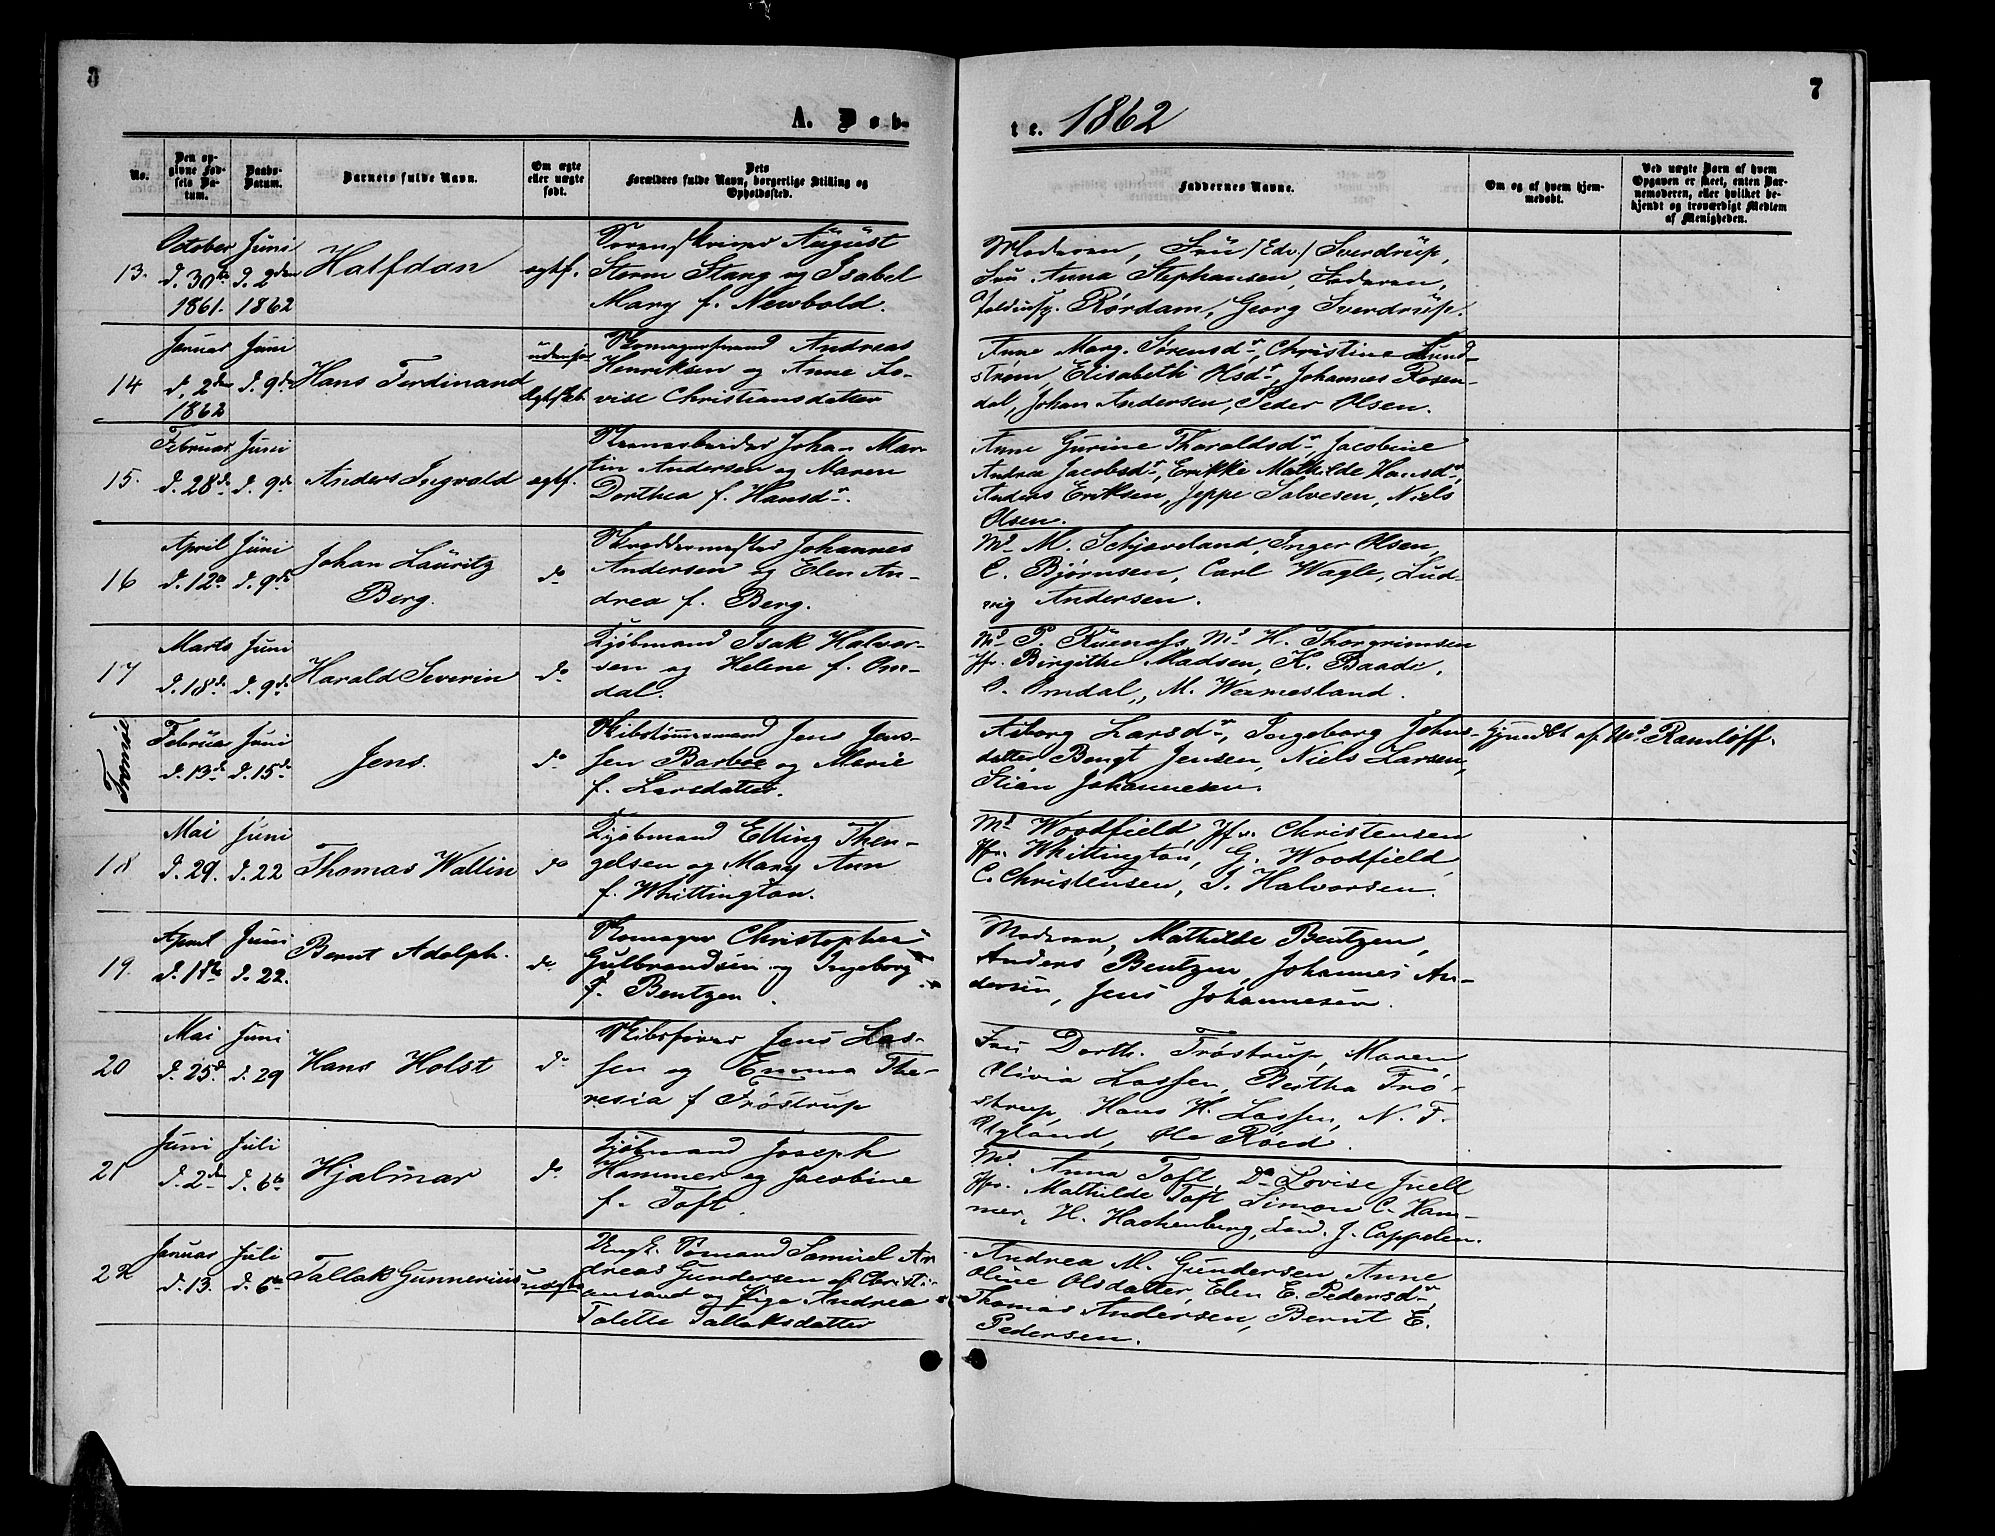 7
A. Døb-
te. 1862
No.
Den op-
givne Fød-
sels Da-
tum.
Daabs-
Datum.
Barnets fulde Navn.
Om ægte
eller uægte
født.
Dets
Forældres fulde Navn, borgerlige Stilling og
Opholdssted.
Faddernes Navne.
Om og af hvem hjem-
medøbt.
Ved uægte Barn af hvem
Opgaven er skeet, enten Bar-
nemoderen, eller hvilket be-
kjendt og troværdigt Medlem
af Menigheden.
13.
October
d. 30te
1861.
Juni
d. 2den
1862
Halfdan
egtf.
Sorenskriver August
Storm Stang og Isabel
Mary f. Newbold.
Moderen, Fru (Edv.) Sverdrup,
Fru Anna Stephansen, Faderen,
Rørdam, Georg Sverdrup.
14
Januar
d. 2den
1862
Juni
d. 9de
Hans Ferdinand
udenfor
Egtskb.
Skomagersvend Andreas
Henriksen og Anne Lo-
vise Christiansdatter
Anne Marg. Sørensdr, Christine Lund-
strøm, Elisabeth Olsdr, Johannes Rosen-
dal, Johan Andersen, Peder Olsen.
15.
Februar
d. 28de
Juni
d. 9de
Anders Ingvald
egtf.
Johan Mar-
tin Andersen og Maren
Dorthea f. Hansdr.
Anne Gurine Tharaldsdr, Jacobine
Andrea Jacobsdr, Erikke Mathilde Hansdr,
Anders Eriksen, Jeppe Salvesen, Niels
Olsen.
16
April
d. 12te
Juni
d. 9de
Johan Lauritz
Berg.
do
Skreddermester Johannes
Andersen og Elen An-
drea f. Berg.
Md M. Schjæveland, Inger Olsen,
C. Bjørnsen, Carl Wagle, Lud-
vig Andersen.
17
Marts
d. 18de
Juni
d. 9de
Harald Severin
do
Kjøbmand Isak Halvor-
sen og Helene f. Om-
dal.
Md P. Md H. Thorgrimsen
Jfr. Birgithe Madsen, K. Baade,
O. Omdal, M. Wermesland.
Tromøe
Februar
d. 13de
Juni
d. 15de
Jens.
do
Skibstømmermand Jens Jens-
sen Barboe og Marie
f. Larsdatter.
Asborg Larsdr, Ingeborg Johns-
datter Bengt Jensen, Niels Larsen,
Stian Johannesen.
hjmdbt af Md Ramløff.
18
Mai
d. 29.
Juni
d. 22
Thomas Wallin
do
Kjøbmand Elling Then-
gelsen og Mary Ann
f. Whittington.
Md Woodfield, Jfr. Christensen
Jfr. Whittington, G. Woodfield,
C. Christensen, I. Halvorsen.
19.
April
Juni
d. 22.
Bernt Adolph.
do
Skomager Christopher
Gulbrandsen og Ingeborg
f. Bentzen.
Moderen, Mathilde Bentzen,
Anders Bentzen, Johannes An-
dersen, Jens Johannesen.
20
Mai
d. 25de
Juni
d. 29
Hans Holst
do
Skibsfører Jens Las-
sen og Emma The-
resia f Trøstrup
Fru Dorth. Trøstrup, Maren
Olivia Lassen, Bertha Trø-
strup, Hans H. Lassen, N. F.
Ugland, Ole Røed.
21
Juni
d. 2den
Juli
d. 6te
Hjalmar
do
Kjøbmand Joseph
Hammer og Jacobine
f. Toft.
Md Anna Toft, Do Lovise Juell
Jfr. Mathilde Toft Simon C. Ham-
mer, H. Hachenberg, Lud. J. Cappelen.
22
Januar
d. 13.
Juli
d. 6te
Tallak Gunnerius
uegte
Ungk. Sømand Samuel An
dreas Gundersen af Christi-
ansand og Pige Andrea
Talette Tallaksdatter
Andrea M. Gundersen, Anne
Oline Olsdatter, Elen E. Pedersdr,
Thomas Andersen, Bernt E.
Pedersen.